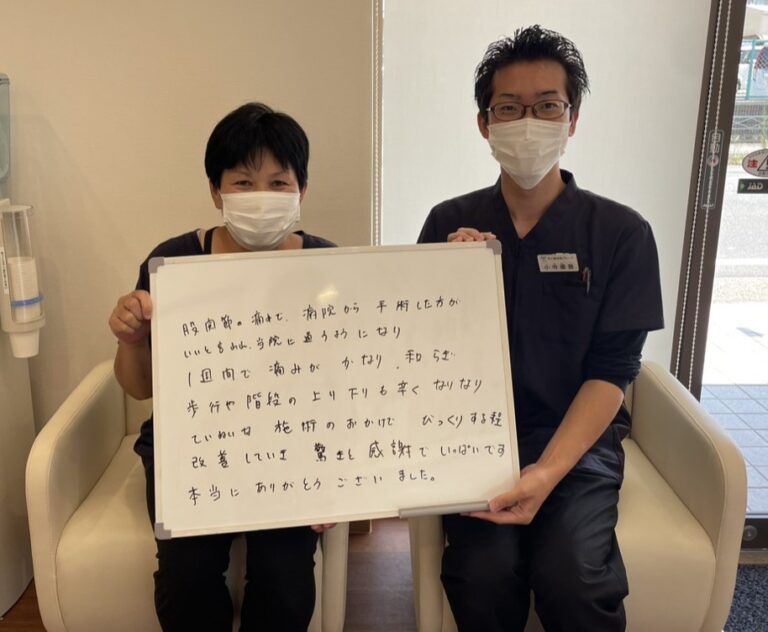 股関節の痛みで、病院から手術した方が
いいと言われ、当院に通うようになり
1週間で痛みがかなり、和らぎ
歩行や階段の上り下りも辛くなりなり
ていねいな施術のおかげでびっくりする程
改善していき驚きと感謝でいっぱいです
本当にありがとうございました。
注